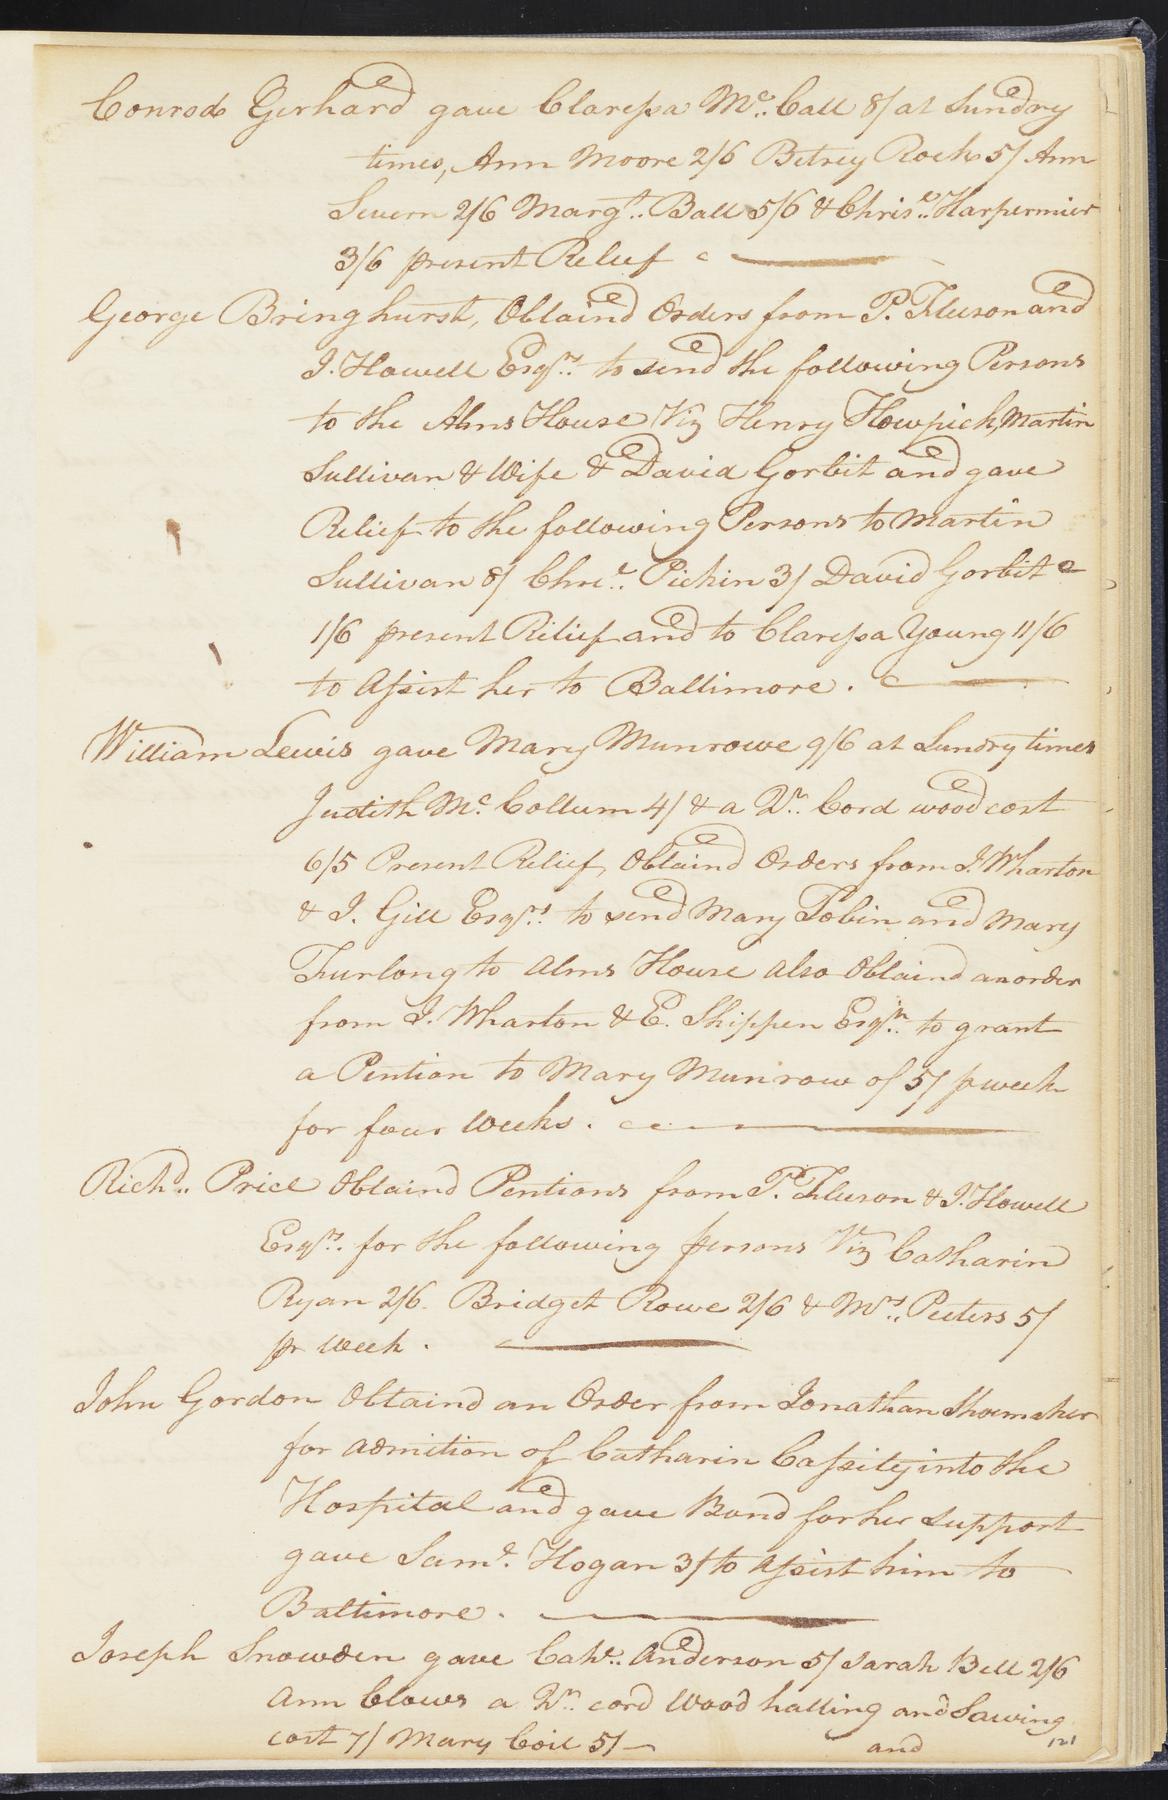 Conrod Gerhard gave Claressa Mc. Call 8/ at Sundry
times, Ann Moore 2/6 Betsey Rock 5/ Ann
Severn 2/6 Margt. Ball 5/6 & Chrisr. Harpermier
3/6 present Relief
George Bringhurst, Obtaind Orders from P. Tluson and
J. Howell Esqrs. to send the following Persons
to the Alms House Viz Henry Howpich, Martin
Sullivan & Wife & David Gorbit and gave
Relief to the following Persons to Martin
Sullivan 8/ Pickin 3/ David Gorbit
1/6 present Relief and to Claressa Young 11/6
to Assist her to Baltimore.
William Lewis gave Mary Munrowe 9/6 at Sundry times
Judith Mc. Collum 4/ & a Qr. Cord wood cost
6/5 Present Relief, Obtaind Orders from J. Wharton
& J. Gill Esqrs. to send Mary Tobin and Mary
Furlong to Alms House also Obtaind an order
from J. Wharton & E. Shippen Esqrs. to grant
a Pention to Mary Munrow of 5/ p week
for four Weeks.
Richd. Price Obtaind Pentions from P. Tluson & J. Howell
Esqrs. for the following persons Viz Catharin
Ryan 2/6. Bridget Rowe 2/6 & Mrs. Peeters 5/
pr Week.
John Gordon Obtaind an Order from Jonathan Shoemaker
for admition of Catharin Cassity into the
Hospital and gave Bond for her support
gave Saml. Hogan 3/ to Assist him to
Baltimore.
Joseph Snowden gave Cathe. Anderson 5/ Sarah Bell 2/6
Ann Clows a Qr. cord Wood halling and Sawing
cost 7/ Mary Coil 5/
and
121